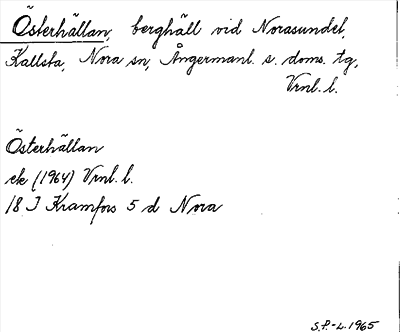 Österhällan, berghäll vid Norasundet,
Kallsta, Nora sn, Ångermanl. s. doms. tg,
Vrnl. l.
Österhällan
ek (1964) Vrnl. l.
18 J Kramfors 5 d Nora
S.F.-L. 1965